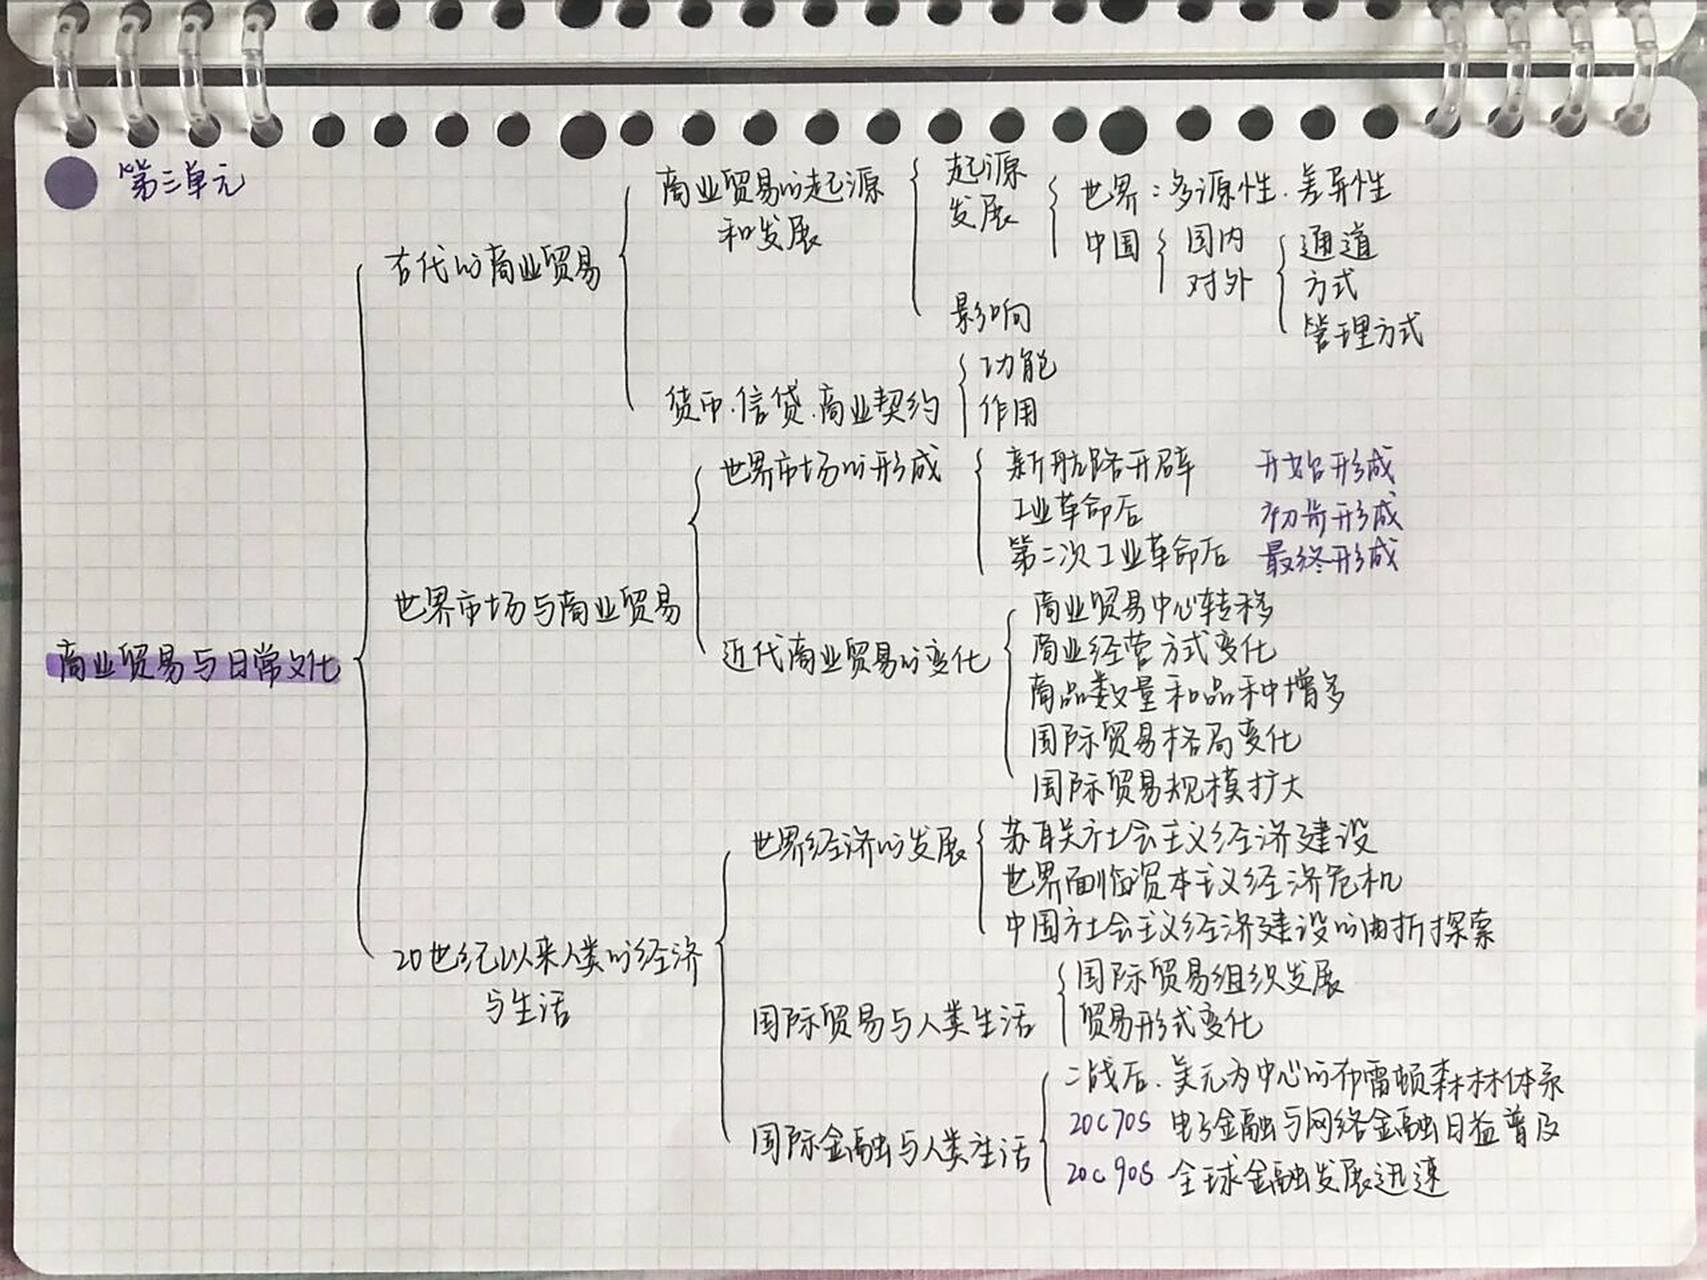 第三单元
商业贸易与日常文化
古代的商业贸易
商业贸易的起源
和发展
起源
发展
世界：多源性.差异性
中国
国内
对外
通道
方式
管理方式
影响
货币.信贷.商业契约
功能
作用
世界市场与商业贸易
世界市场的形成
新航路开辟 开始形成
工业革命后 初步形成
第二次工业革命后 最终形成
近代商业贸易的变化
商业贸易中心转移
商业经营方式变化
商品数量和品种增多
国际贸易格局变化
国际贸易规模扩大
20世纪以来人类的经济
与生活
世界经济的发展
苏联社会主义经济建设
世界面临资本主义经济危机
中国社会主义经济建设的曲折探索
国际贸易与人类生活
国际贸易组织发展
贸易形式变化
国际金融与人类生活
二战后.美元为中心的布雷顿森林体系
20c70s 电子金融与网络金融日益普及
20c90s 全球金融发展迅速